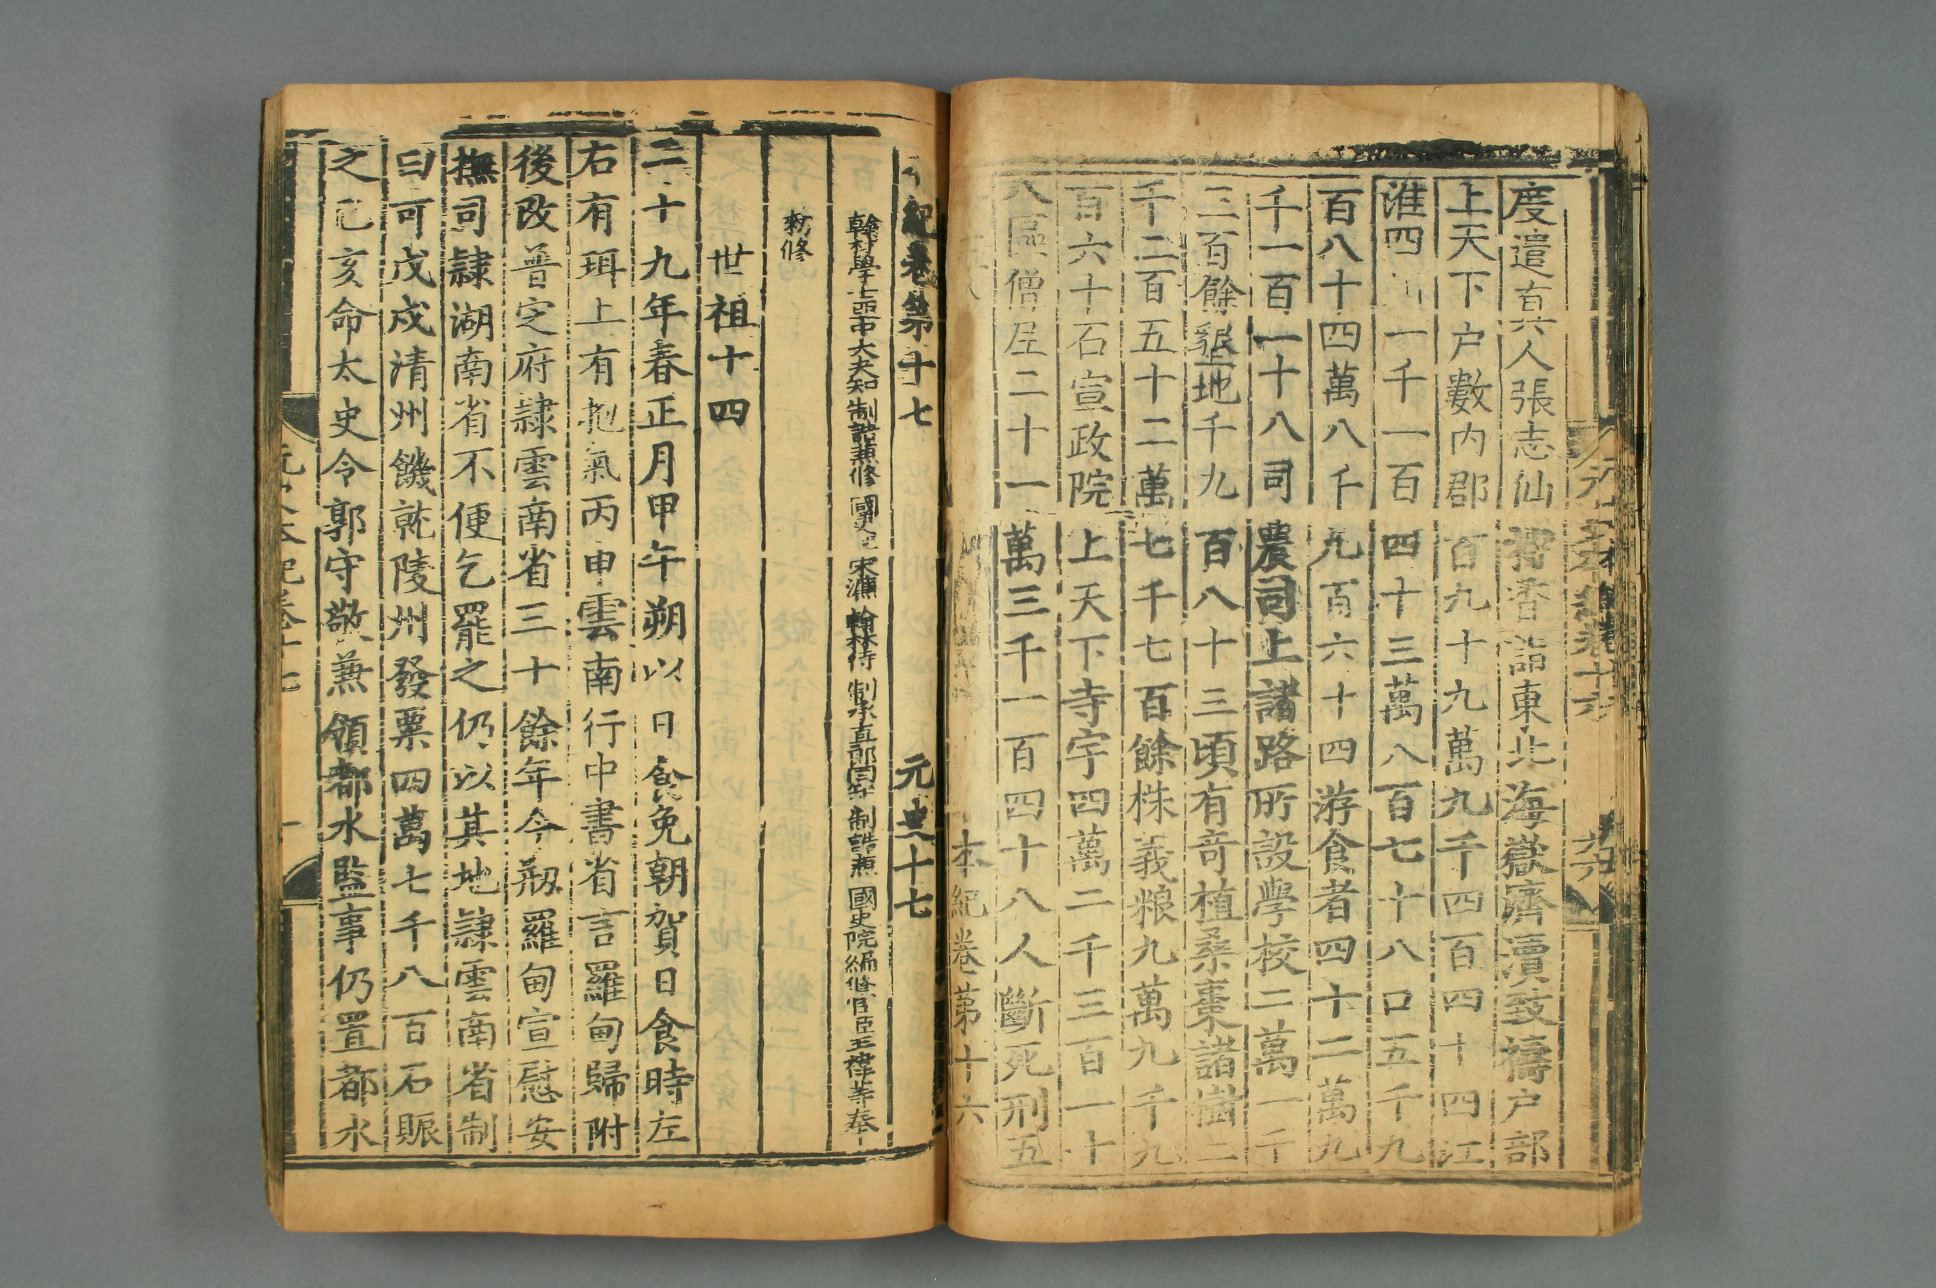 度遣百六人張志仙𢬵香詣東北海嶽濟瀆致禱户部
上天下户數内郡百九十九萬九千四百四十四江
淮四川一千一百四十三萬八百七十八口五千九
百八十四萬八千九百六十四游食者四十二萬九
千一百一十八司農司上諸路所設學校二萬一千
三百餘墾地千九百八十三頃有竒植桑棗諸樹二
千二百五十二萬七千七百餘株義粮九萬九千九
百六十石宣政院上天下寺宇四萬二千三百一十
八區僧尼二十一萬三千一百四十八人斷死刑五
本紀卷第十六
紀卷第十七 元史十七
翰林學士亞中大夫知制誥兼修國史宋濂 翰林待制承直郎同知制誥兼國史院編修官臣王禕等奉
敕修
世祖十四
二十九年春正月甲午朔以日食免朝賀日食時左
右有珥上有抱氣丙申雲南行中書省言羅甸歸附
後改普定府隷雲南省三十餘年今剏羅甸宣慰安
撫司隷湖南省不便乞罷之仍以其地隷雲南省制
曰可戊戍清州饑就陵州發粟四萬七千八百石賑
之己亥命太史令郭守敬兼領都水監事仍置都水
元史本紀卷十七